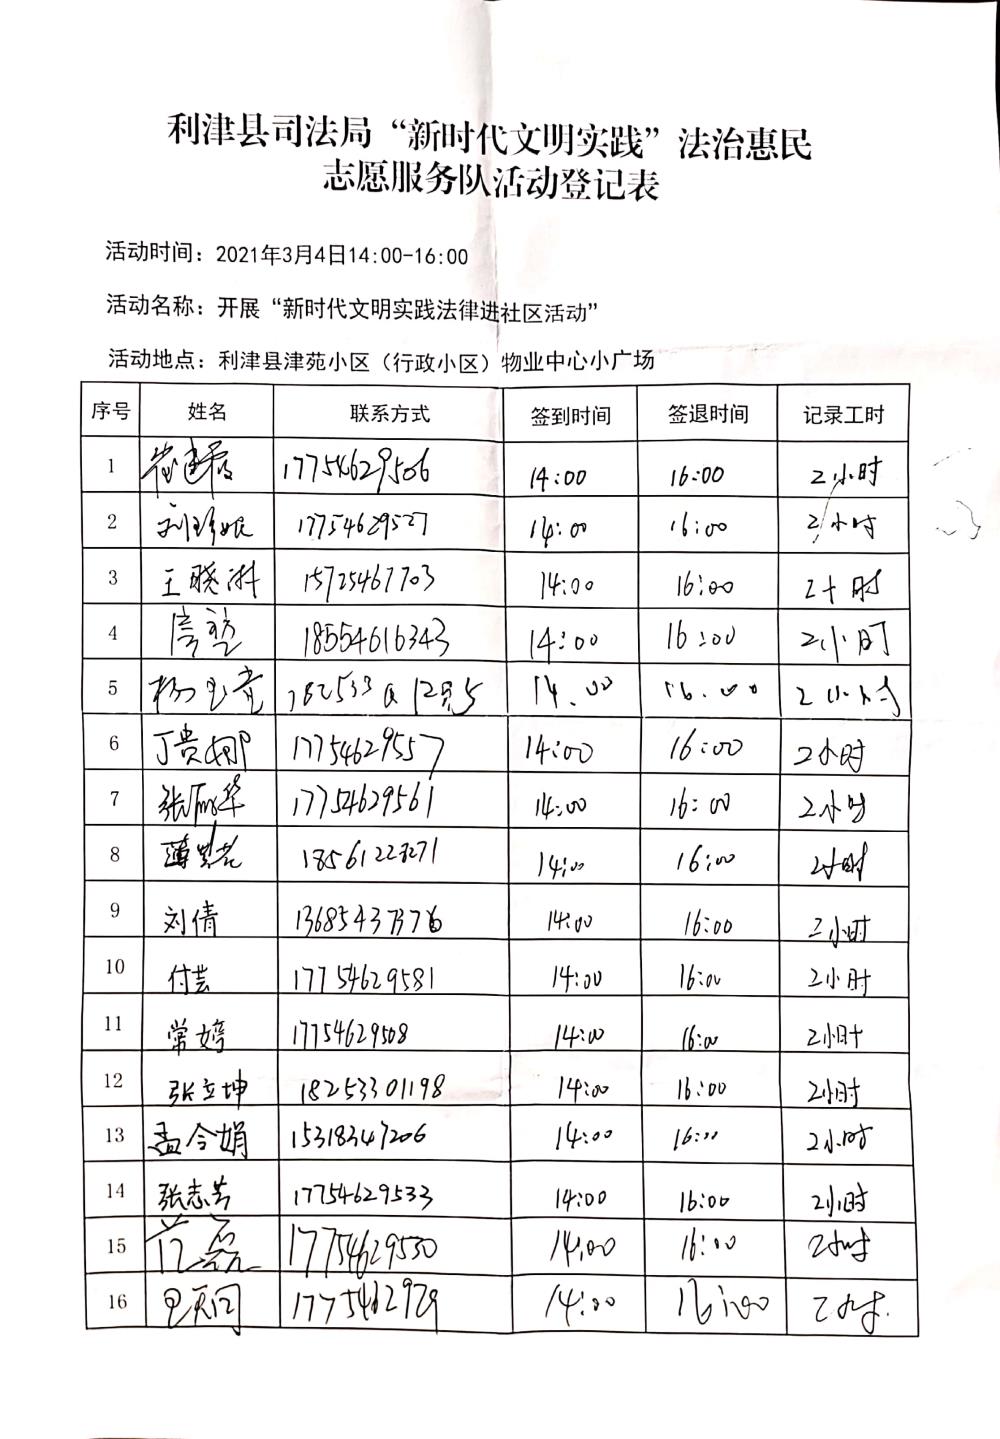 利津县司法局“新时代文明实践”法治惠民
志愿服务队活动登记表
活动时间：2021年3月4日14:00-16:00
活动名称：开展“新时代文明实践法律进社区活动”
活动地点：利津县津苑小区（行政小区）物业中心小广场
序号 姓名 联系方式 签到时间 签退时间 记录工时
1 17754629506 14:00 16:00 2小时
2 17754629527 14:00 16:00 2小时
3 王晓 15725467703 14:00 16:00 2小时
4 18554616343 14:00 16:00 2小时
5 杨 14:00 16:00 2小时
6 丁贵娜 17754629557 14:00 16:00 2小时
7 张丽华 17754629561 14:00 16:00 2小时
8 薄 14:00 16:00 2小时
9 刘倩 14:00 16:00 2小时
10 付芸 17754629581 14:00 16:00 2小时
11 常婷 17754629508 14:00 16:00 2小时
12 张立坤 18253301198 14:00 16:00 2小时
13 孟令娟 15318347206 14:00 16:00 2小时
14 张志芳 17754629533 14:00 16:00 2小时
15 范磊 17754629530 14:00 16:00 2小时
16 14:00 16:00 2小时